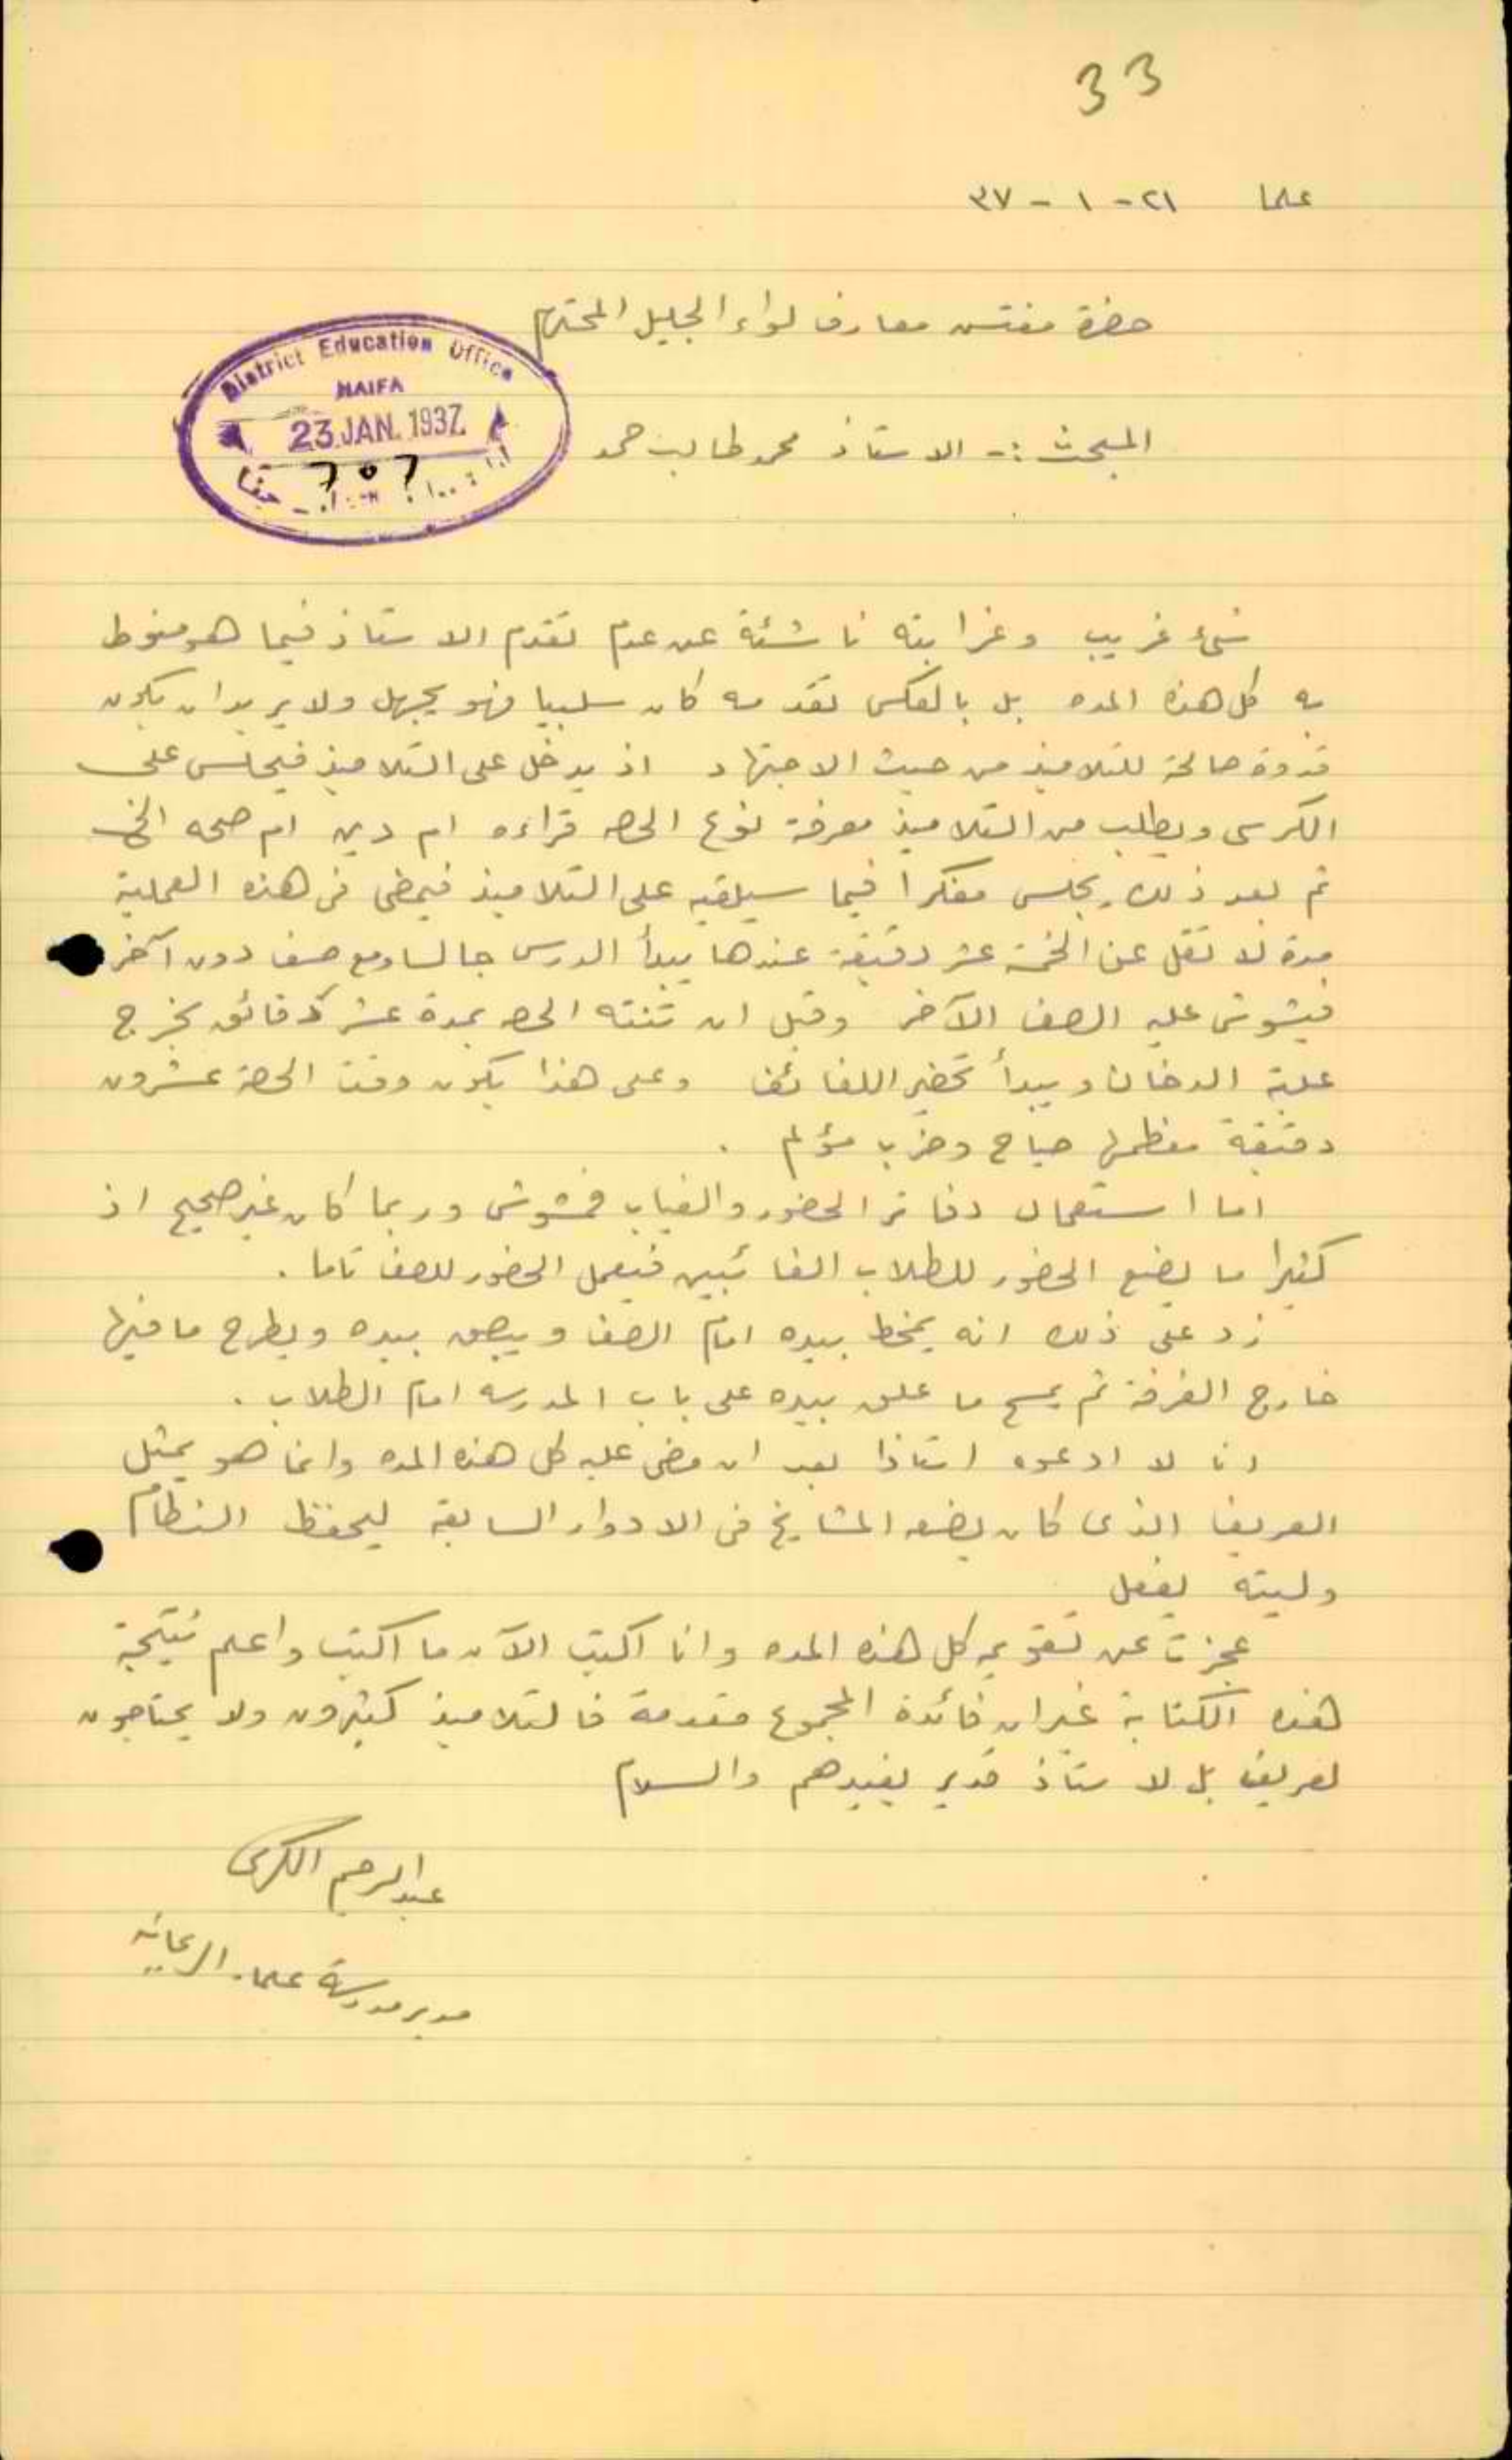 33
علما ٢١ - ١ - ٣٧
حضرة مفتش معارف لواء الجليل المحترم
District Education Office
HAIFA
23 JAN. 1937
حيفا
المبحث :- الاستاذ محمد طالب حمد
شيء غريب وغرابته ناشئة عن عدم تقدم الاستاذ فيما هو منوط
به كل هذه المده بل بالعكس تقدمه كان سلبيا فهو يجهل ولا يريد ان يكون
قدوة صالحة للتلاميذ من حيث الاجتهاد اذ يدخل على التلاميذ فيجلس على
الكرسي ويطلب من التلاميذ معرفة نوع الحصه قراءه ام دين ام صحه الخ
ثم بعد ذلك يجلس مفكرا فيما سيلقيه على التلاميذ فيمضي في هذه العملية
مدة لا تقل عن الخمسة عشر دقيقة عندها يبدأ الدرس جالسا ومع صف دون آخر
فيشوش عليه الصف الآخر وقبل ان تنته الحصه بمدة عشر دقائق يخرج
علبة الدخان ويبدأ تحضير اللفائف وعلى هذا يكون وقت الحصة عشرون
دقيقة معظمها صياح وضرب مؤلم .
اما استعمال دفاتر الحضور والغياب فمشوش وربما كان غير صحيح اذ
كثيرا ما يضع الحضور للطلاب الغائبين فيعمل الحضور للصف تاما .
زد على ذلك انه يمخط بيده امام الصف ويبصق بيده ويطرح ما فيها
خارج الغرفة ثم يمسح ما علق بيده على باب المدرسه امام الطلاب .
انا لا ادعوه استاذا بعد ان مضى عليه كل هذه المده وانما هو يمثل
العريف الذي كان يضعه المشايخ في الادوار السابقة ليحفظ النظام
وليته يفعل
عجزت عن تقويمه كل هذه المده وانا اكتب الآن ما اكتب واعلم نتيجة
هذه الكتابة غير ان فائدة المجموع مقدمة فالتلاميذ كثيرون ولا يحتاجون
لعريف بل لاستاذ قدير يفيدهم والسلام
عبد الرحيم الكرمي
مدير مدرسة علما - الريحانيه